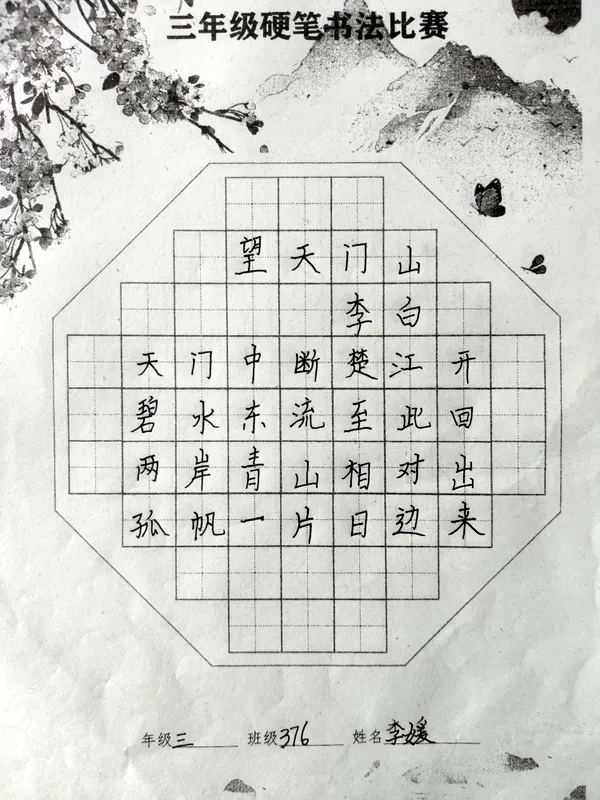 三年级硬笔书法比赛
望天门山
李白
天门中断楚江开
碧水东流至此回
两岸青山相对出
孤帆一片日边来
年级三 班级376 姓名李媛